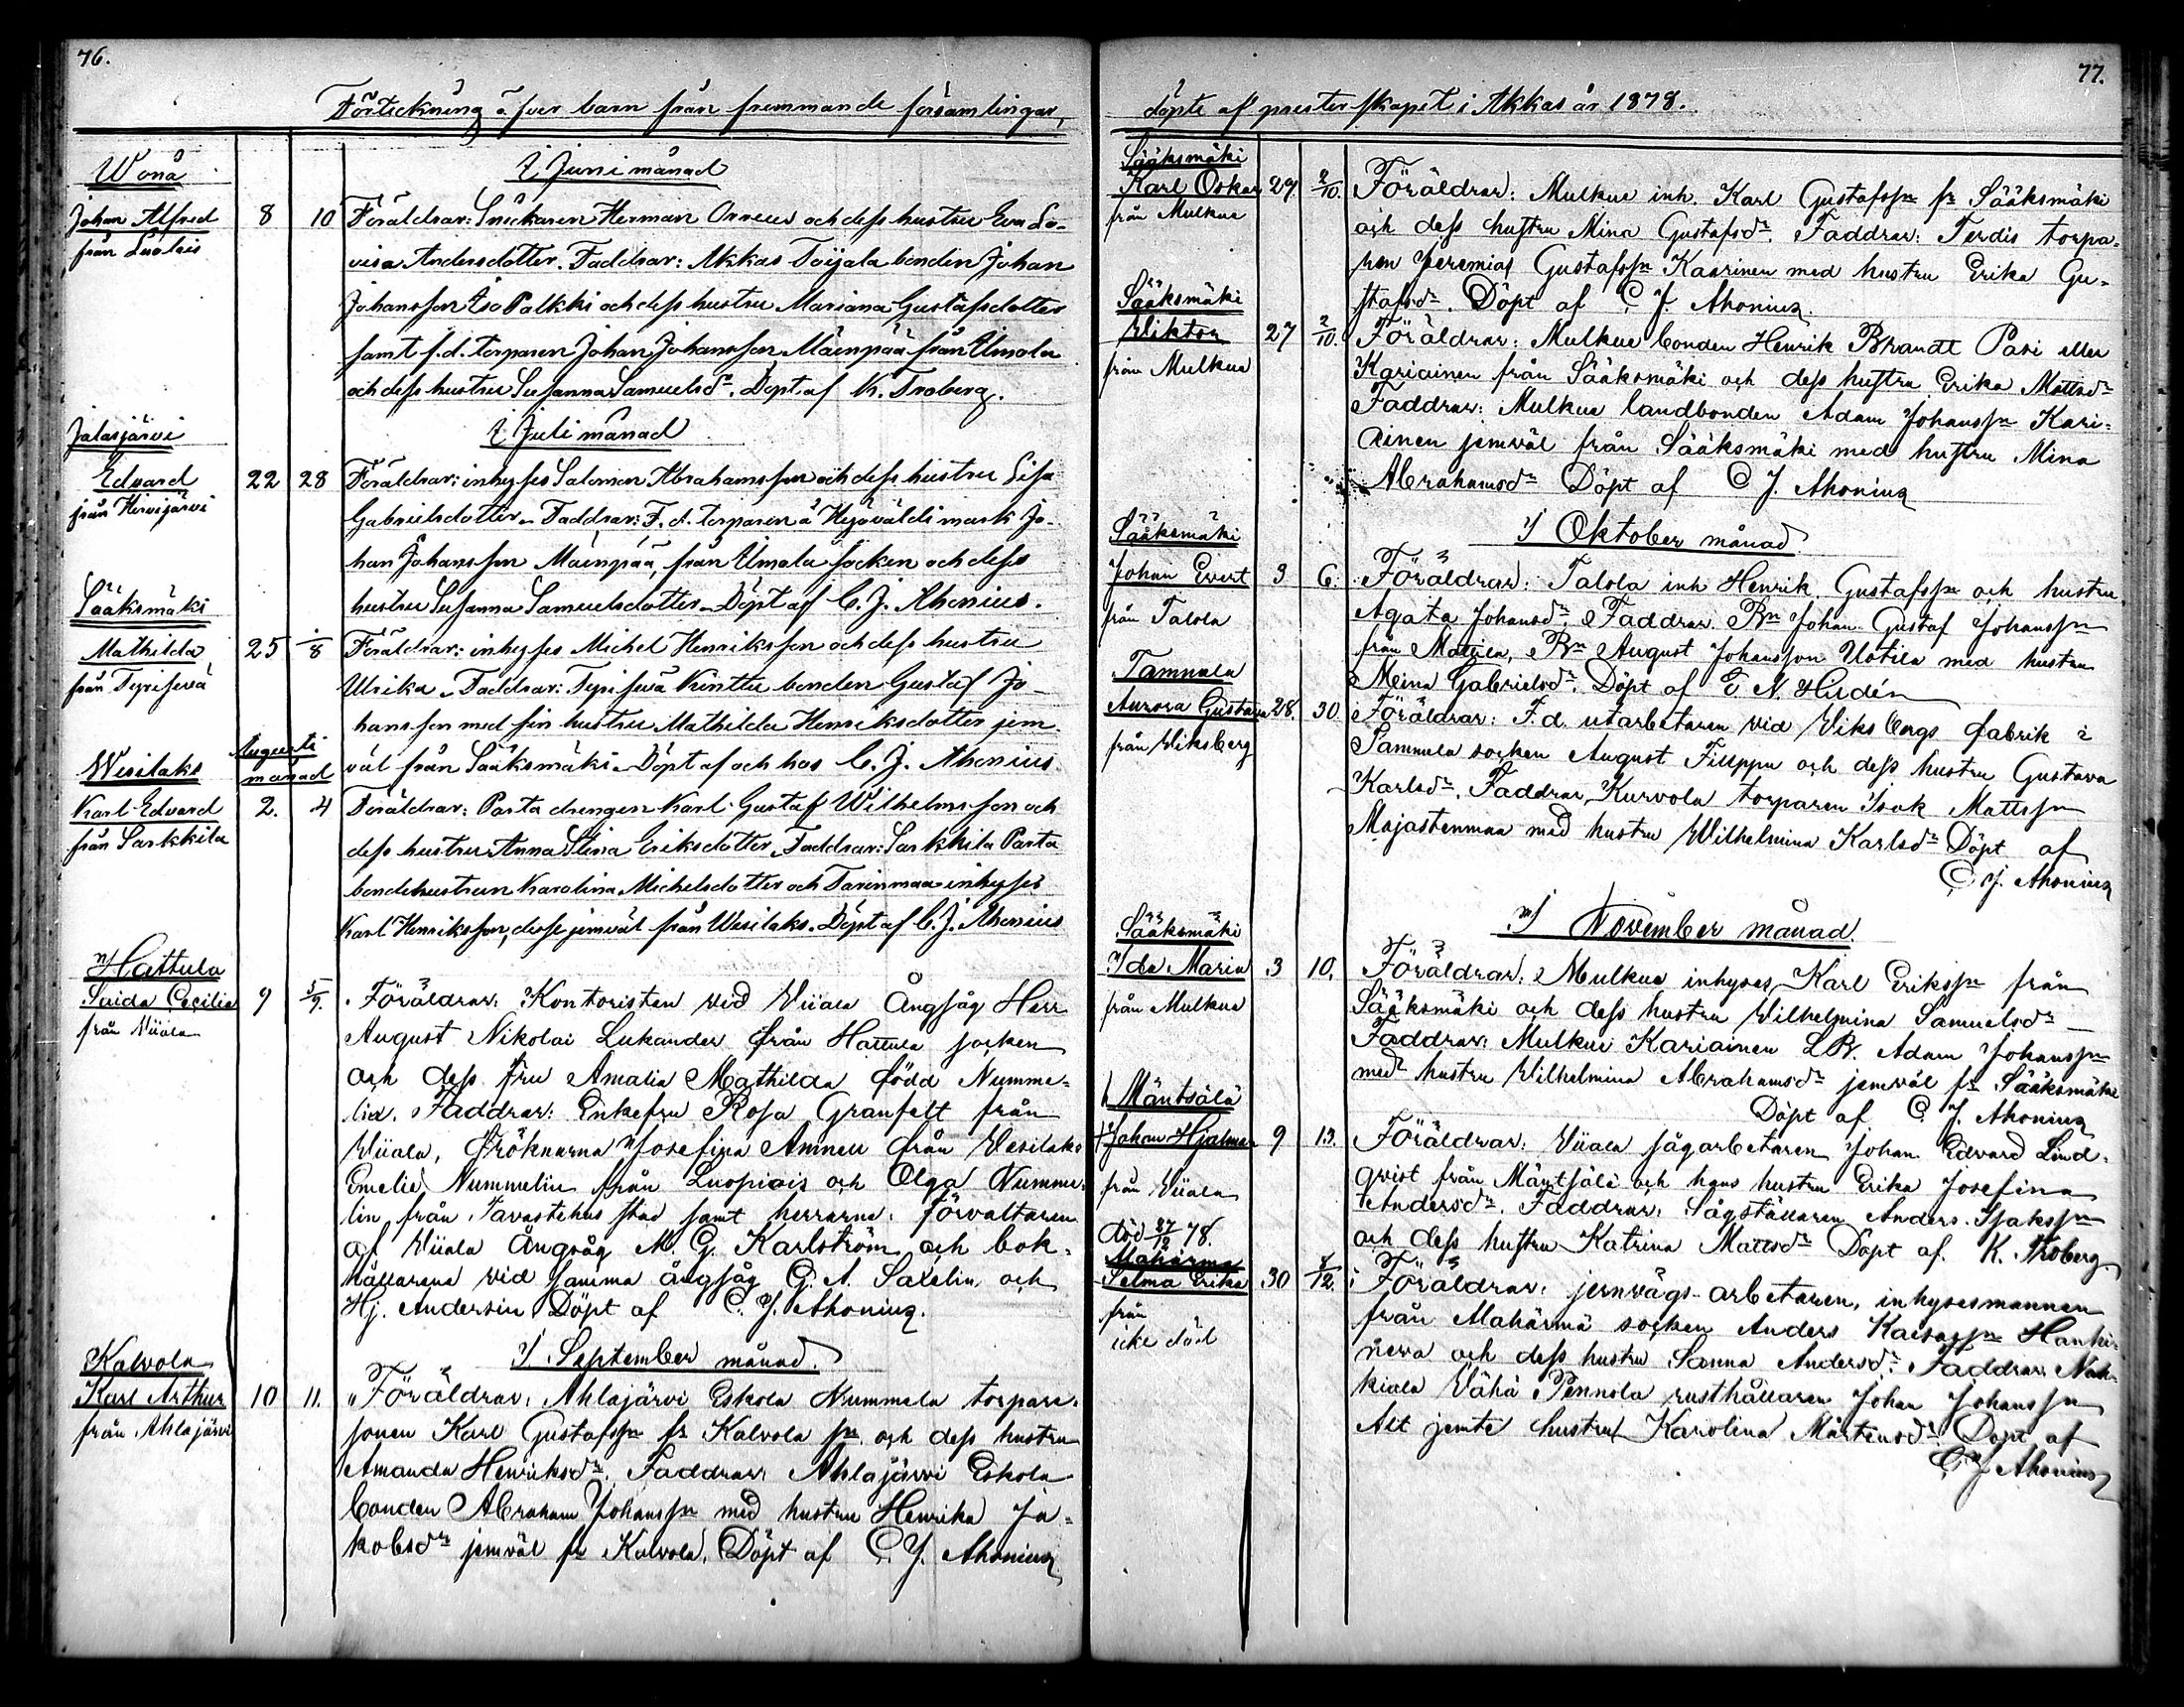 76.
Förteckning öfver barn från fremmande församlingar,
I Juni månad
Wånå
Johan Alfred 8 10 Föräldrar: Snickaren Herman Orneus och dess hustru Eva Lo-
från
visa Andersdotter. Faddrar: Akkas Toijala bonden Johan
Johansson Iso Palkki och dess hustru Mariana Gustafsdotter
samt f.d. torparen Johan Johansson Mäenpää från Urjala
och dess hustru Susanna Samuelsdr. Döpt af K. Troberg.
I Juli månad
Jalasjärvi
Edvard 22 28 Föräldrar: inhyses Salomon Abrahamsson och dess hustru Lisa
från Hirvijärvi
Gabrielsdotter. Faddrar: F.d. torparen å mark Jo-
han Johansson Mäenpää, från Urjala socken och dess
hustru Susanna Samuelsdotter. Döpt af C. J. Ahonius.
Sääksmäki
Mathilda 25 /8 Föräldrar: inhyses Michel Henriksson och dess hustru
från
Ulrika. Faddrar: bonden Gustaf Jo-
hansson med sin hustru Mathilda Henriksdotter jem-
väl från Sääksmäki. Döpt af och hos C. J. Ahonius.
Augusti månad
Wesilaks
Karl Edvard 2. 4 Föräldrar: Parta drengen Karl Gustaf Wilhelmsson och
från Sarkkila
dess hustru Anna Stina Eriksdotter. Faddrar: Sarkkila Parta
bondehustrun Karolina Michelsdotter och inhyses
Karl Henriksson, desse jemväl från Wesilaks. Döpt af C. J. Ahonius
Hattula
Saida Cecilia 9 5/9. Föräldrar: Kontoristen vid Viiala Ångsåg Herr
från Viiala
August Nikolai Lukander från Hattula socken
och dess fru Amalia Mathilda född Numme-
lin. Faddrar: Enkefru Rosa Granfelt från
Viiala, fröknarna Josefina Amnell från Vesilaks
Emelie Nummelin från Luopiois och Olga Numme-
lin från Tavastehus stad samt herrarne: förvaltaren
af Viiala ångsåg M. G. Karlström och bok-
hållarena vid samma ångsåg G. A. Saxelin och
Hj. Andersin Döpt af C. J. Ahonius.
I September månad.
Kalvola
Karl Arthur 10 11. Föräldrar: Ahlajärvi Eskola Nummela torpare-
från Ahlajärvi
sonen Karl Gustafsson fr Kalvola sn och dess hustru
Amanda Henriksdr. Faddrar: Ahlajärvi Eskola
bonden Abraham Johanssn med hustru Henrika Ja-
kobsdr jemväl fr Kalvola. Döpt af C. J. Ahonius
77.
döpte af presterskapet i Akkas år 1878.
Sääksmäki
Karl Oskar 29. 2/10. Föräldrar: Mulkue inh. Karl Gustafssn fr Sääksmäki
från Mulkue
och dess hustru Mina Gustafsdr. Faddrar: Terdis torpa-
ren Jeremias Gustafssn Kaarinen med hustru Erika Gu-
stafsdr. Döpt af C. J. Ahonius.
Sääksmäki
Viktor 27 2/10. Föräldrar: Mulkue bonden Henrik Brandt Pasi eller
från Mulkue
Kariainen från Sääksmäki och dess hustru Erika Mattsdr
Faddrar: Mulkue landbonden Adam Johanssn Kari-
ainen jemväl från Sääksmäki med hustru Mina
Abrahamsdr Döpt af C J. Ahonius
I Oktober månad
Sääksmäki
Johan Evert 3 6. Föräldrar: Talola inh Henrik Gustafssn och hustru
från Talola
Agata Johansdr. Faddrar Bn Johan Gustaf Johanssn
från Mattila, Bn August Johansson Uotila med hustru
Meina Gabrielsdr. Döpt af E N. Hudén
Tammela
Aurora Gustava 28. 30 Föräldrar: F.d. utarbetaren vid Viksbergs fabrik i
från Viksberg
Tammela socken August Filuppu och dess hustru Gustava
Karlsdr. Faddrar, Kurvola torparen Isak Mattssn
Majastenmaa med hustru Wilhelmina Karlsdr Döpt af
C J. Ahonius
I November månad.
Sääksmäki
Ida Maria 3 10. Föräldrar: Mulkua inhyses Karl Erikssn från
från Mulkue
Sääksmäki och dess hustru Wilhelmina Samuelsdr
Faddrar: Mulkue Kariainen LB. Adam Johanssn
med hustru Wilhelmina Abrahamsdr jemväl fr Sääksmäki
Döpt af C. J. Ahonius
Mäntsälä
Johan Hjalmar 9 13. Föräldrar: Viiala sågarbetaren Johan Edvard Lind-
från Viiala
qvist från Mäntsälä och hans hustru Erika Josefina
Andersdr. Faddrar: Sågställaren Anders Isakssn
död 27/12 78.
och dess hustru Katrina Mattsdr Döpt af K. Troberg
Mahärma
Selma Erika 30 8/12. Föräldrar: jernvägs-arbetaren, inhysesmannen
från
icke död
från Alahärmä socken Anders Hanki-
neva och dess hustru Sanna Andersdr. Faddrar Nah-
kiala Vähä Pennola rusthållaren Johan Johanssn
Alt jemte hustru Karolina Mårtensdr Döpt af
C. J Ahonius